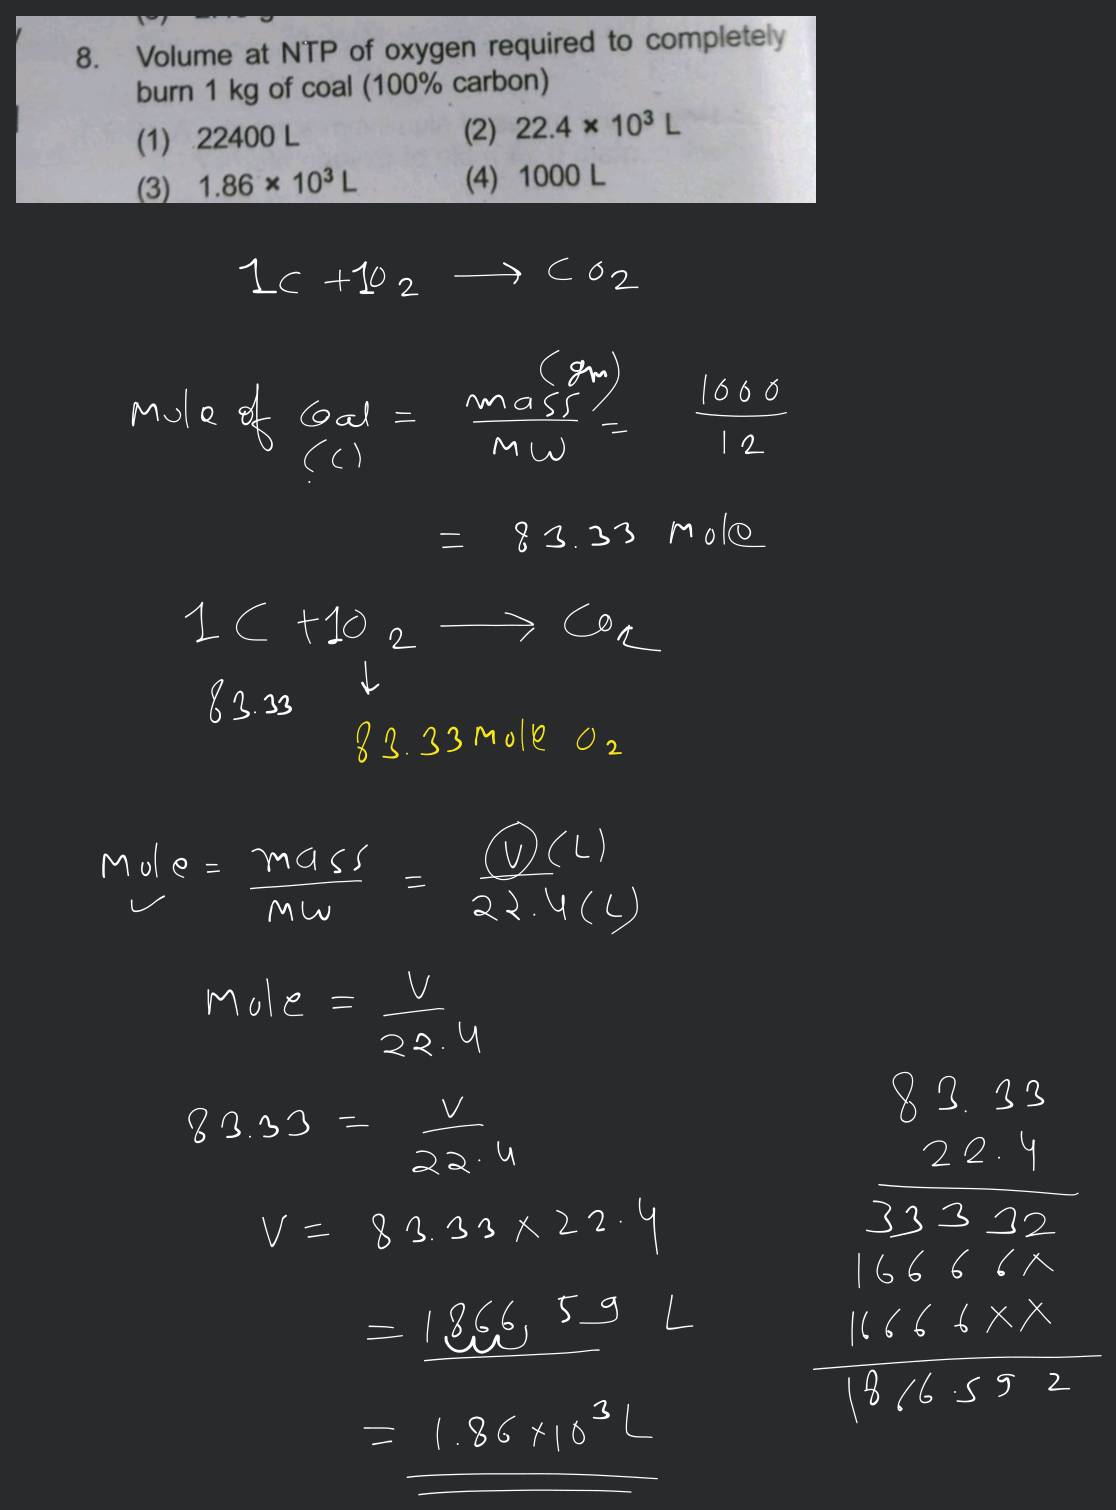 8. Volume at NTP of oxygen required to completely
burn 1 kg of coal (100% carbon)
(1) 22400 L (2) 22.4 × 10³ L
(3) 1.86 × 10³ L (4) 1000 L
1C + 1O₂ → CO₂
Mole of Coal (C) = mass (gm) / MW = 1000 / 12
= 83.33 Mole
1C + 1O₂ → CO₂
83.33 ↓
83.33 Mole O₂
Mole = mass / MW = V (L) / 22.4 (L)
Mole = V / 22.4
83.33 = V / 22.4
V = 83.33 × 22.4
= 1866.59 L
= 1.86 × 10³ L
83.33
22.4
33332
16666×
16666××
1866.592